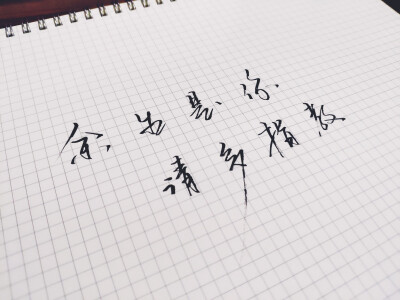 余生是你
请多指教